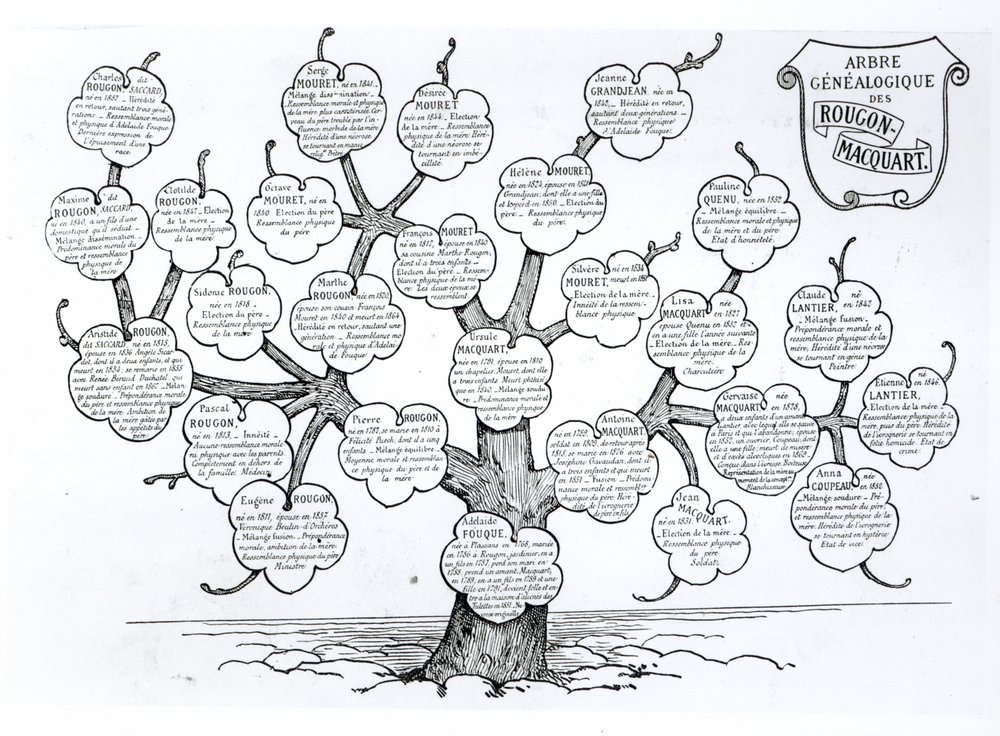 ARBRE
GÉNÉALOGIQUE
DES
ROUGON-
MACQUART.
Charles dit
ROUGON, SACCARD,
né en 1857. _ Hérédité
en retour, sautant trois géné-
rations. _ Ressemblance morale
et physique d'Adélaïde Fouque.
Dernière expression de
l'épuisement d'une
race.
Serge
MOURET, né en 1841.
Mélange dissémination.
Ressemblance morale et physique
de la mère plus caractérisée. Cer-
veau du père troublé par l'in-
fluence morbide de la mère
Hérédité d'une névrose
se tournant en mysti-
Prêtre
Désirée
MOURET
née en 1844. _ Election
de la mère. _ Ressemblance
physique de la mère. Héré-
dité d'une névrose se
tournant en imbé-
cillité.
Jeanne
GRANDJEAN, née en
1842. _ Hérédité en retour,
sautant deux générations. _
Ressemblance physique
d'Adélaïde Fouque.
Maxime dit
ROUGON, SACCARD,
né en 1840, a un fils d'une
domestique qu'il séduit _
Mélange dissémination. _
Prédominance morale du
père et ressemblance
physique de
la mère
Clotilde
ROUGON.
née en 1847. _ Election
de la mère _
Ressemblance physique
de la mère
Octave
MOURET, né en
1840 Election du père
Ressemblance physique
du père
Hélène
MOURET,
née en 1824, épouse en 1841
Grandjean, dont elle a une fille
et le perd en 1850. _ Election du
père. _ Ressemblance
physique du
père.
Pauline
QUENU, née en 1852.
_ Mélange équilibre. _
Ressemblance morale et physique
de la mère et du père
Etat d'honnêteté.
François
MOURET
né en 1817, épouse en 1840
sa cousine Marthe Rougon,
dont il a trois enfants _
Election du père _ Ressem-
blance physique de la mè-
re Les deux époux se
ressemblent
Sidonie ROUGON.
née en 1818. _
Election du père _
Ressemblance physique
de la mère
Marthe
ROUGON, née en 1820,
épouse son cousin François
Mouret en 1840 et meurt en 1864
_ Hérédité en retour, sautant une
génération. _ Ressemblance mo-
rale et physique d'Adélaï-
de Fouque
Silvère né en 1834
MOURET, meurt en 1851
_ Election de la mère. _
Innéité de la ressem-
blance physique
Lisa née
MACQUART, en 1827
épouse Quenu en 1852 et
en a une fille l'année suivante
_ Election de la mère. _ Res-
semblance physique de la
mère.
Charcutière
Claude né
LANTIER, en 1842.
_ Mélange fusion. _
Prépondérance morale et
ressemblance physique de la
mère. Hérédité d'une névrose
se tournant en génie
Peintre
Aristide ROUGON,
dit SACCARD, né en 1815,
épouse en 1836 Angèle Sicar-
dot, dont il a deux enfants, et qui
meurt en 1854; se remarie en 1855
avec Renée Béraud Duchatel, qui
meurt sans enfant en 1867 _ Mélan-
ge soudure. _ Prépondérance morale
du père et ressemblance physique
de la mère. Ambition de
la mère gâtée par
les appétits du
père
Ursule
MACQUART,
née en 1791, épouse en 1810
un chapelier, Mouret, dont elle
a trois enfants. Meurt phtisi-
que en 1840. _ Mélange soudu-
re. _ Prédominance morale et
ressemblance physique
de la mère
Pascal
ROUGON,
né en 1813. _ Innéité _
Aucune ressemblance morale
ni physique avec les parents.
Complètement en dehors de
la famille. Médecin
Pierre ROUGON,
né en 1787, se marie en 1810 à
Félicité Puech, dont il a cinq
enfants _ Mélange équilibre _
Moyenne morale et ressemblan-
ce physique du père et de
la mère
Antoine
né en 1789, MACQUART
soldat en 1809, de retour après
1815, se marie en 1826 avec
Joséphine Gavaudan, dont il
a trois enfants et qui meurt
en 1851 _ Fusion _ Prédomi-
nance morale et ressemblance
physique du père. Héré-
dité de l'ivrognerie
de père en fils
Gervaise née
MACQUART, en 1828,
a deux enfants d'un amant
Lantier avec lequel elle se sauve
à Paris et qui l'abandonne; épouse en
1852, un ouvrier, Coupeau, dont
elle a une fille; meurt de misère
et d'excès alcooliques en 1869. _
Conçue dans l'ivresse. Boiteuse
Représentation de la mère au
moment de la concept.
Blanchisseuse
Etienne né en 1846.
LANTIER,
_ Election de la mère. _
Ressemblance physique de la
mère, puis du père. Hérédité
de l'ivrognerie se tournant en
folie homicide. Etat de
crime.
Eugène ROUGON,
né en 1811, épouse en 1857
Véronique Beulin-d'Orchères
_ Mélange fusion. _ Prépondérance
morale, ambition de la mère.
Ressemblance physique du père
Ministre
Adélaïde
FOUQUE,
née à Plassans en 1768, mariée
en 1786 à Rougon, jardinier, en a
un fils en 1787, perd son mari en
1788, prend un amant, Macquart,
en 1789, en a un fils en 1789 et une
fille en 1791, devient folle et en-
tre à la maison d'aliénés des
Tulettes en 1851 _ Né-
vrose originelle
Jean
MACQUART,
né en 1831
_ Election de la mère. _
Ressemblance physique
du père.
Soldat
Anna
COUPEAU, née en 1852.
_ Mélange soudure _ Pré-
pondérance morale du père,
et ressemblance physique de la
mère. Hérédité de l'ivrognerie
se tournant en hystérie
Etat de vice.